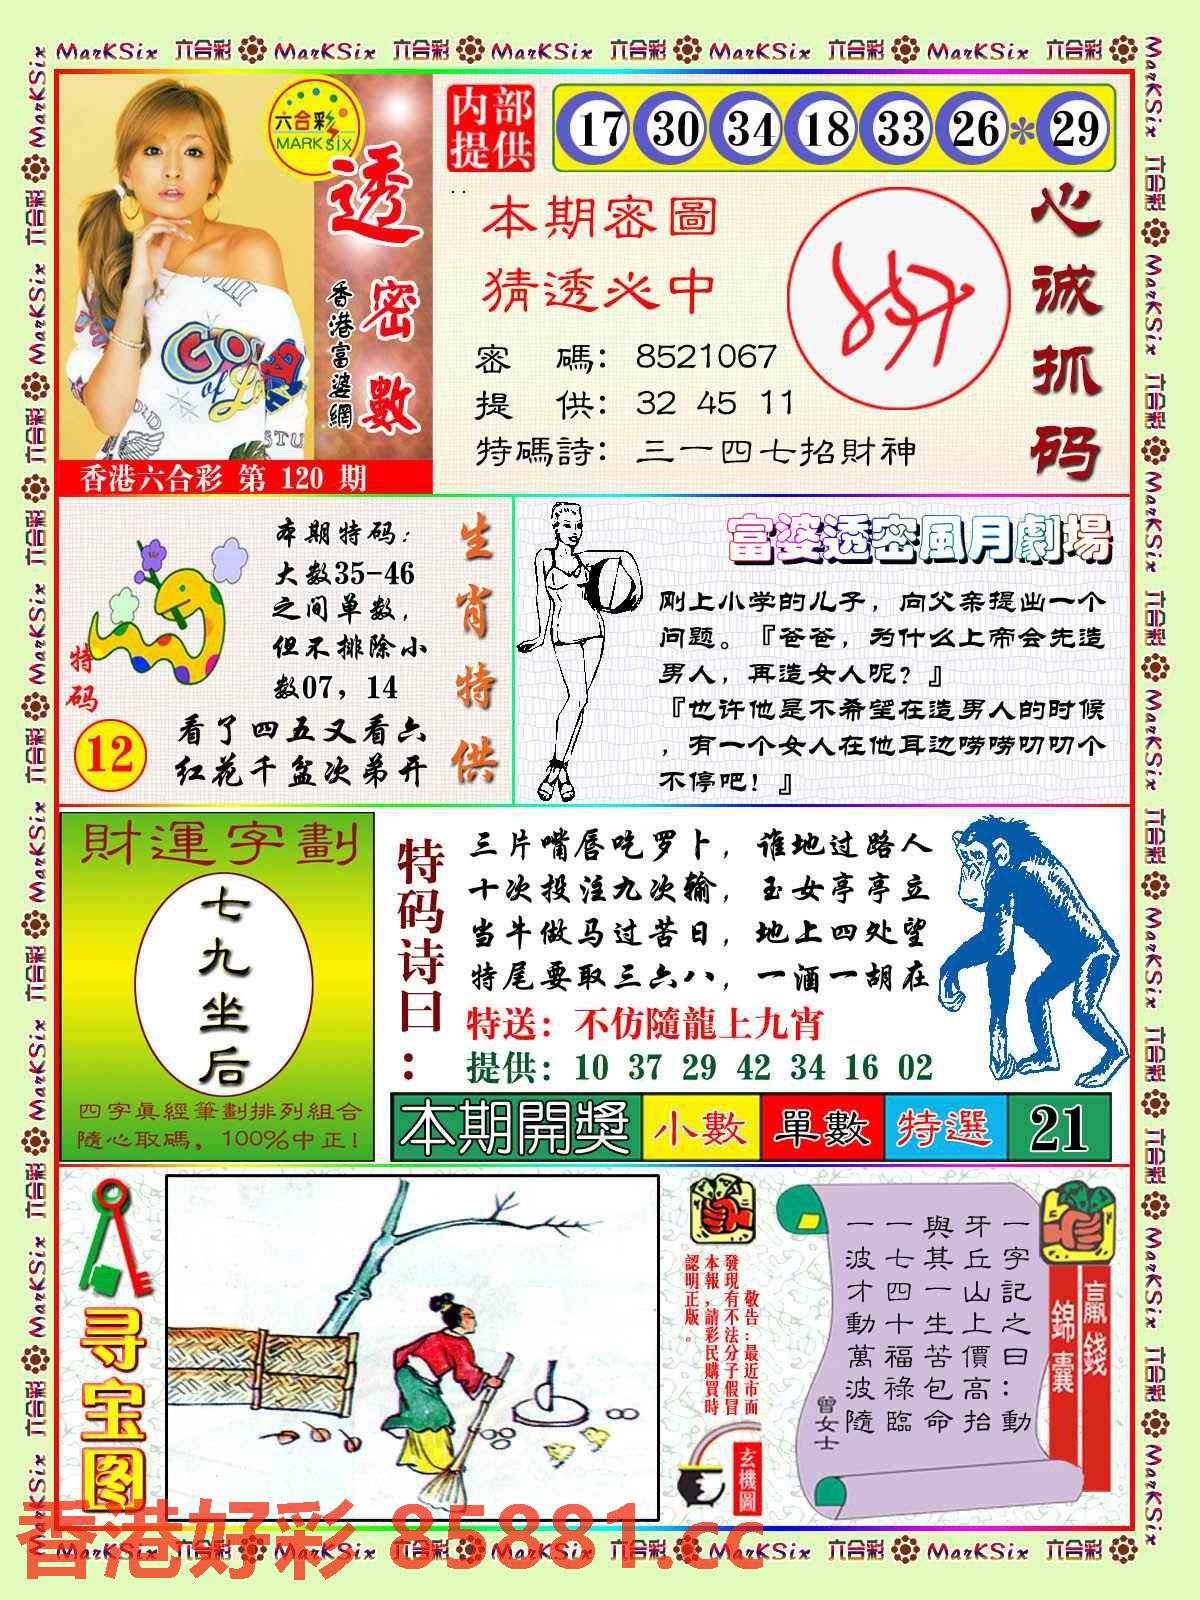 MarKSix 六合彩 MarKSix 六合彩 MarKSix 六合彩 MarKSix 六合彩 MarKSix 六合彩
六合彩
MARK SIX
透密數
香港富婆網
香港六合彩 第 120 期
内部提供
17 30 34 18 33 26 * 29
本期密圖
猜透必中
密 碼: 8521067
提 供: 32 45 11
特碼詩: 三一四七招財神
心诚抓码
本期特码:
大数35-46
之间单数,
但不排除小
数07, 14
生肖特供
特码
12
看了四五又看六
红花千盆次弟开
富婆透密風月劇場
刚上小学的儿子, 向父亲提出一个
问题。『爸爸, 为什么上帝会先造
男人, 再造女人呢? 』
『也许他是不希望在造男人的时候
, 有一个女人在他耳边唠唠叨叨个
不停吧! 』
財運字劃
七九坐后
四字真經筆劃排列組合
隨心取碼, 100%中正!
特码诗曰:
三片嘴唇吃罗卜, 谁地过路人
十次投注九次输, 玉女亭亭立
当牛做马过苦日, 地上四处望
特尾要取三六八, 一酒一胡在
特送: 不仿隨龍上九宵
提供: 10 37 29 42 34 16 02
本期開獎 小數 單數 特選 21
寻宝图
敬告:最近市面
發現有不法分子假冒
本報,請彩民購買時
認明正版。
玄機圖
一字記之曰: 動
牙丘山上價高抬
與其一生苦包命
一七四十福祿臨
一波才動萬波隨
曾女士
贏錢
錦囊
香港好彩 85881.cc
MarKSix 六合彩 MarKSix 六合彩 MarKSix 六合彩 MarKSix 六合彩 MarKSix 六合彩